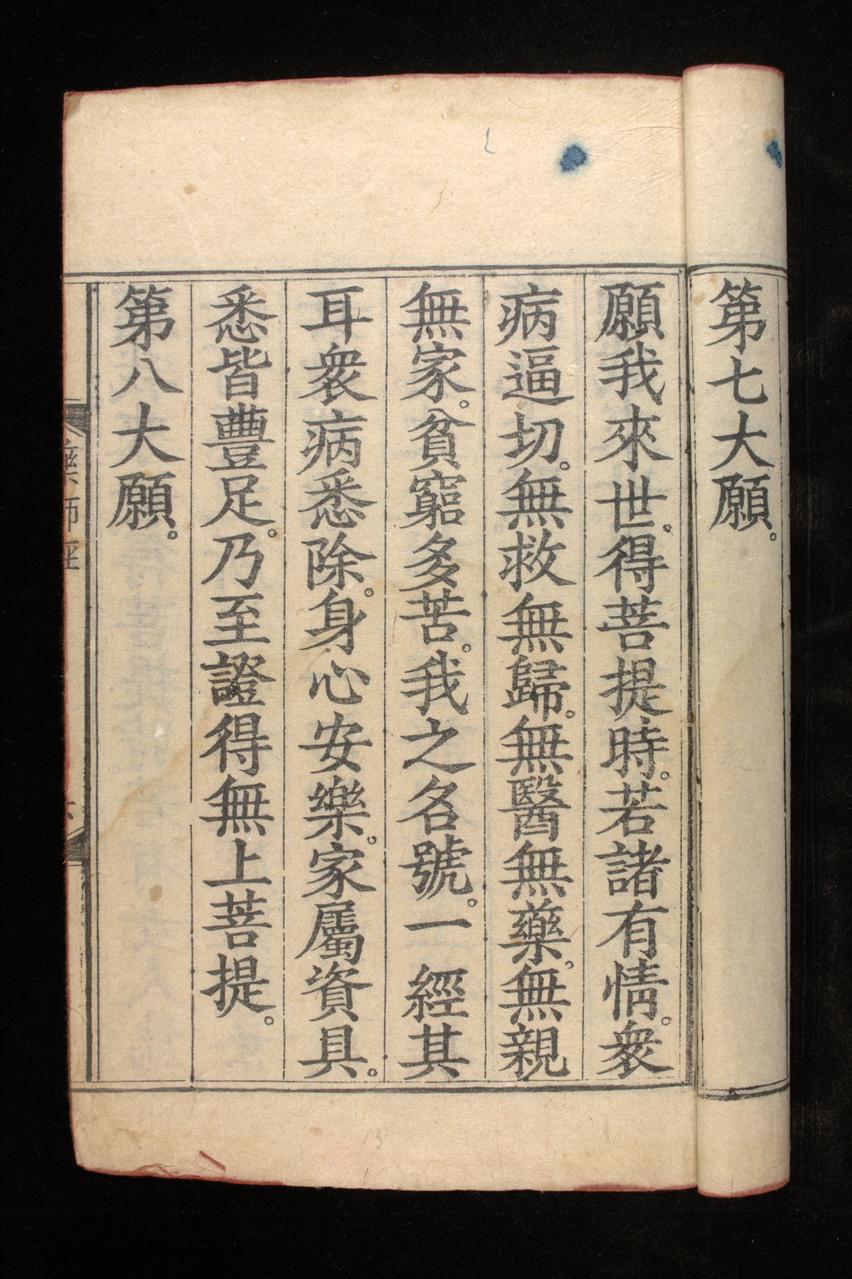 第七大願。
願我來世、得菩提時。若諸有情。衆
病逼切。無救無歸。無醫無藥。無親
無家。貧窮多苦。我之名號。一經其
耳衆病悉除。身心安樂。家屬資具。
悉皆豐足。乃至證得無上菩提。
第八大願。
藥師